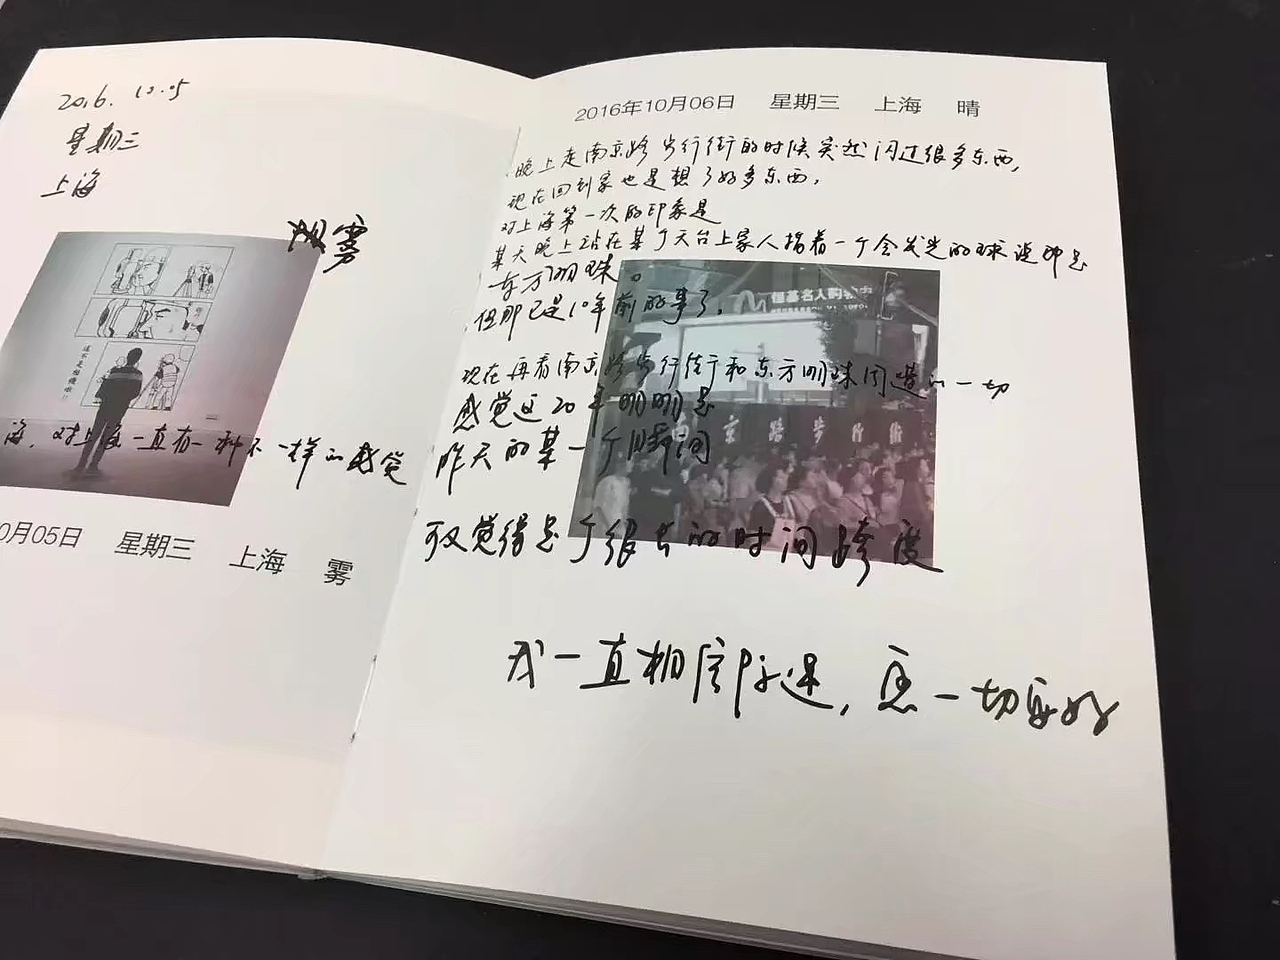 2016.10.05
星期三
上海
烟雾
還不是相機啦!!
海，对上海一直有一种不一样的感觉
0月05日 星期三 上海 雾
2016年10月06日 星期三 上海 晴
晚上走南京路步行街的时候突然闪过很多东西，
现在回到家也是想了好多东西，
对上海第一次的印象是
某天晚上站在某个天台上家人指着一个会发光的球说那是
东方明珠。
但那已是10年前的事了，
恒基名人购物
现在再看南京路步行街和东方明珠周遭的一切
感觉这20年明明是
南京路步行街
昨天的某一个瞬间
可又觉得是个很长的时间跨度
我一直相信际遇，愿一切安好